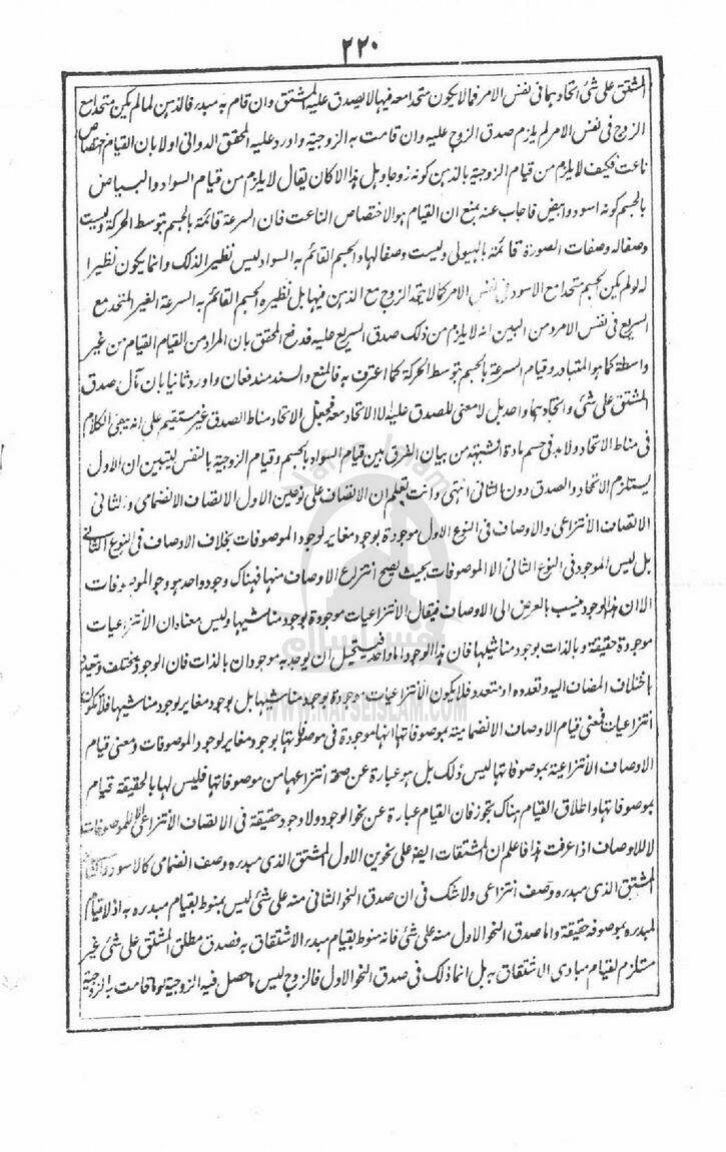 ٢٢٠
المشتق على شئ اتحاد بهما فى نفس الامر فمالا يكون متحدا معه فيها لا يصدق عليه المشتق وان قام به مبدءه فالذهن لما لم يكن متحدا مع
الزوج فى نفس الامر لم يلزم صدق الزوج عليه وان قامت به الزوجية واورد عليه المحقق الدوانى اولا بان القيام اختصاص
ناعت فكيف لا يلزم من قيام الزوجية بالذهن كونه زوجا وهل هذا الا كان يقال لا يلزم من قيام السواد والبياض
بالجسم كونه اسود وابيض فاجاب عنه بمنع ان القيام هو الاختصاص الناعت فان السرعة قائمة بالجسم بتوسط الحركة وليست
وصفا له وصفات الصورة قائمة بالهيولى وليست وصفا لها والجسم القائم به السواد ليس نظير الذلك وانما يكون نظيرا
له لو لم يكن الجسم متحدا مع الاسود فى نفس الامر كما لا يتحد الزوج مع الذهن فيها بل نظيره الجسم القائم به السرعة الغير المتحد مع
السريع فى نفس الامر ومن البين انه لا يلزم من ذلك صدق السريع عليه فدفع المحقق بان المراد من القيام القيام من غير
واسطة كما هو المتبادر وقيام السرعة بالجسم بتوسط الحركة كما اعترف به فالمنع والسند مندفعان واورد ثانيا بان مآل صدق
المشتق على شئ واتحاده بهما واحد بل لا معنى للصدق عليه الا الاتحاد معه فجعل الاتحاد مناط الصدق غير مستقيم على انه يبقى الكلام
فى مناط الاتحاد ولا بد فى حسم مادة الشبهة من بيان الفرق بين قيام السواد بالجسم وقيام الزوجية بالنفس ليتبين ان الاول
يستلزم الاتحاد والصدق دون الثانى انتهى وانت تعلم ان الاتصاف على نوعين الاول الاتصاف الانضمامى والثانى
الاتصاف الانتزاعى والاوصاف فى النوع الاول موجودة بوجود مغاير لوجود الموصوفات بخلاف الاوصاف فى النوع الثانى
بل ليس الموجود فى النوع الثانى الا الموصوفات بحيث يصح انتزاع الاوصاف منها فهناك وجود واحد هو وجود الموصوفات
الا ان هذا الوجود ينسب بالعرض الى الاوصاف فيقال الانتزاعيات موجودة بوجود مناشيها وليس معناه ان الانتزاعيات
موجودة حقيقة وبالذات بوجود مناشيها فان هذا الوجود اما واحد فيستحيل ان يوجد به موجودان بالذات فان الوجود يختلف ويتعدد
باختلاف المضاف اليه وتعدده او متعدد فلا يكون الانتزاعيات موجودة بوجود مناشيها بل بوجود مغاير لوجود مناشيها فلا تكون
انتزاعيات فمعنى قيام الاوصاف الانضمامية بموصوفاتها انها موجودة فى موصوفاتها بوجود مغاير لوجود الموصوفات ومعنى قيام
الاوصاف الانتزاعية بموصوفاتها ليس ذلك بل هو عبارة عن صحة انتزاعها من موصوفاتها فليس لها بالحقيقة قيام
بموصوفاتها واطلاق القيام هناك تجوز فان القيام عبارة عن نحو الوجود ولا وجود حقيقة فى الاتصاف الانتزاعى الا للموصوفات
لا للاوصاف اذا عرفت هذا فاعلم ان المشتقات ايضا على نحوين الاول المشتق الذى مبدءه وصف انضمامى كالاسود والثانى
المشتق الذى مبدءه وصف انتزاعى ولا شك فى ان صدق النحو الثانى منه على شئ ليس بمنوط بقيام مبدءه به اذ لا قيام
لمبدءه بموصوفه حقيقة واما صدق النحو الاول منه على شئ فانه منوط بقيام مبدء الاشتقاق به فصدق مطلق المشتق على شئ غير
مستلزم لقيام مبادى الاشتقاق به بل انما ذلك فى صدق النحو الاول فالزوج ليس ما حصل فيه الزوجية او ما قامت به الزوجية
WWW.NAFSEISLAM.COM